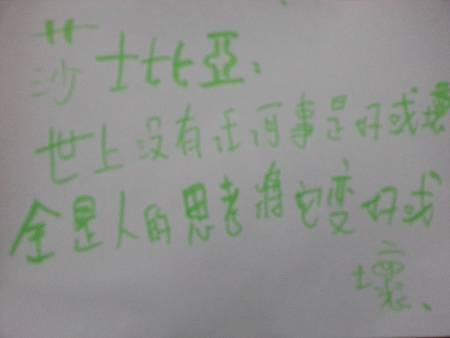 莎士比亞：
世上沒有任何事是好或壞
全是人的思考將它变好或
壞、